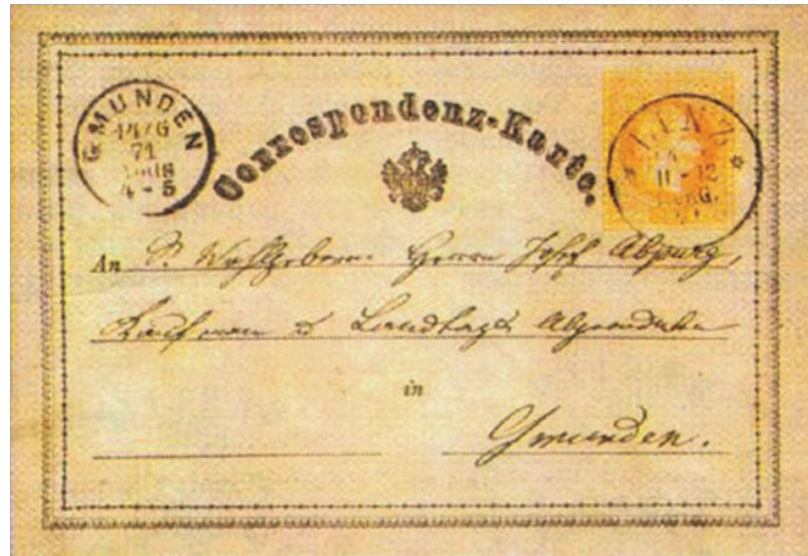 GMUNDEN
14/6
71
4-5
Correspondenz-Karte.
LINZ
11-12
An S. Wohlgeboren Herrn Josef
Kaufmann & Landtags Abgeordneten
in
Gmunden.